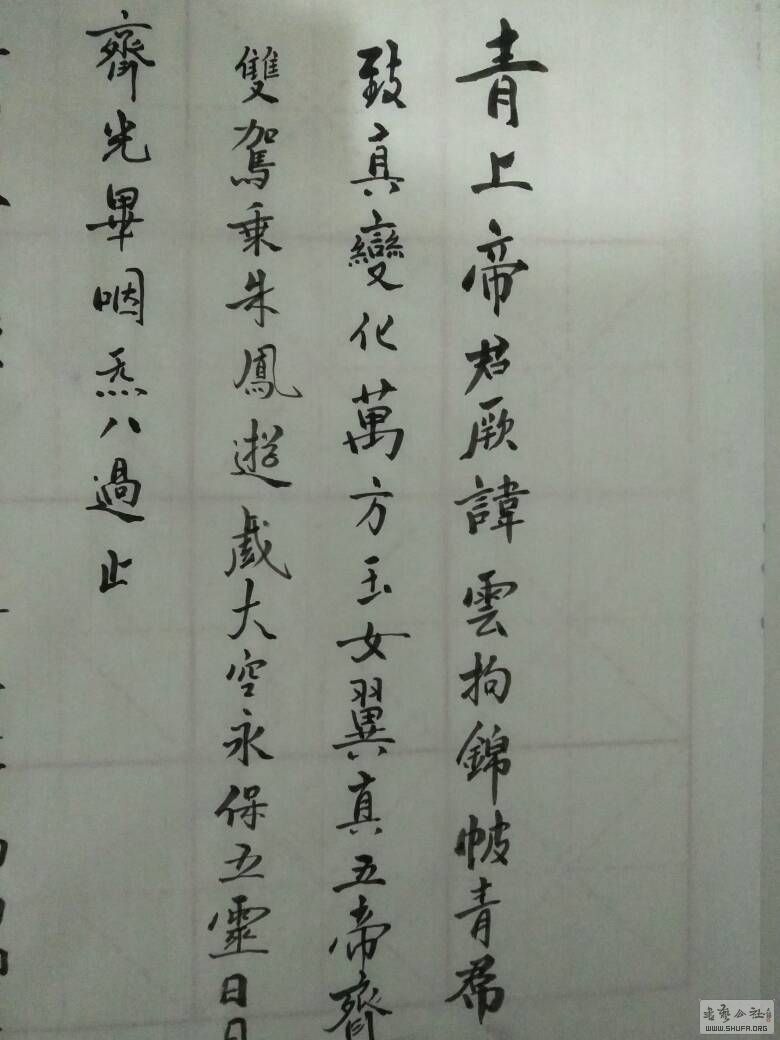 青上帝君厥諱雲拘錦帔青帬
致真變化萬方玉女翼真五帝齊
雙駕乘朱鳳遊戲太空永保五靈日月
齊光畢咽炁八過止
書藝公社
WWW.SHUFA.ORG